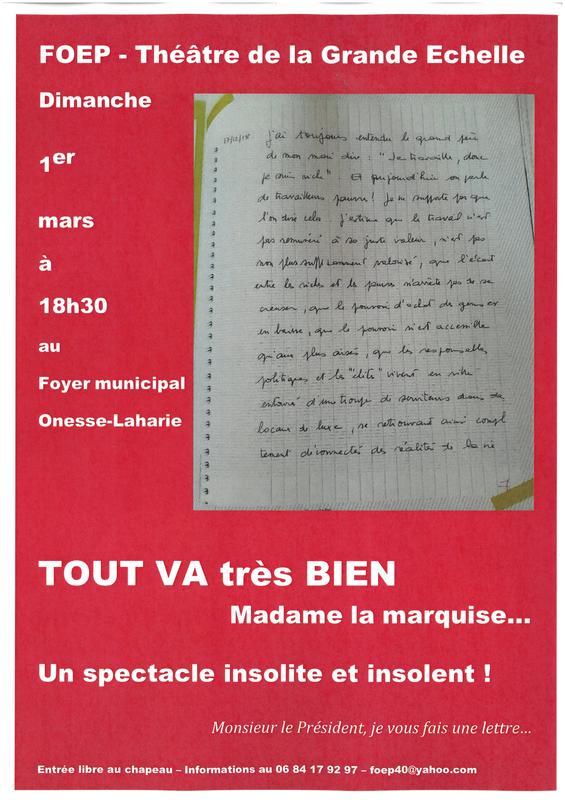 FOEP - Théâtre de la Grande Echelle
Dimanche
1er
mars
à
18h30
au
Foyer municipal
Onesse-Laharie
17/12/18
j'ai toujours entendu le grand père
de mon mari dire : "Je travaille, donc
je suis riche". Et aujourd'hui on parle
de travailleurs pauvres ! Je ne supporte pas que
l'on dise cela. J'estime que le travail n'est
pas remunéré à sa juste valeur, n'est pas
non plus suffisamment valorisé, que l'écart
entre les riches et les pauvres n'arrête pas de se
creuser, que le pouvoir d'achat des gens est
en baisse, que le pouvoir n'est accessible
qu'aux plus aisés, que les responsables
politiques et les "élites" vivent en
entouré d'une troupe de serviteurs dans des
locaux de luxe, se retrouvant ainsi compl
tement déconnectés des réalités de la vie
TOUT VA très BIEN
Madame la marquise...
Un spectacle insolite et insolent !
Monsieur le Président, je vous fais une lettre...
Entrée libre au chapeau – Informations au 06 84 17 92 97 – foep40@yahoo.com